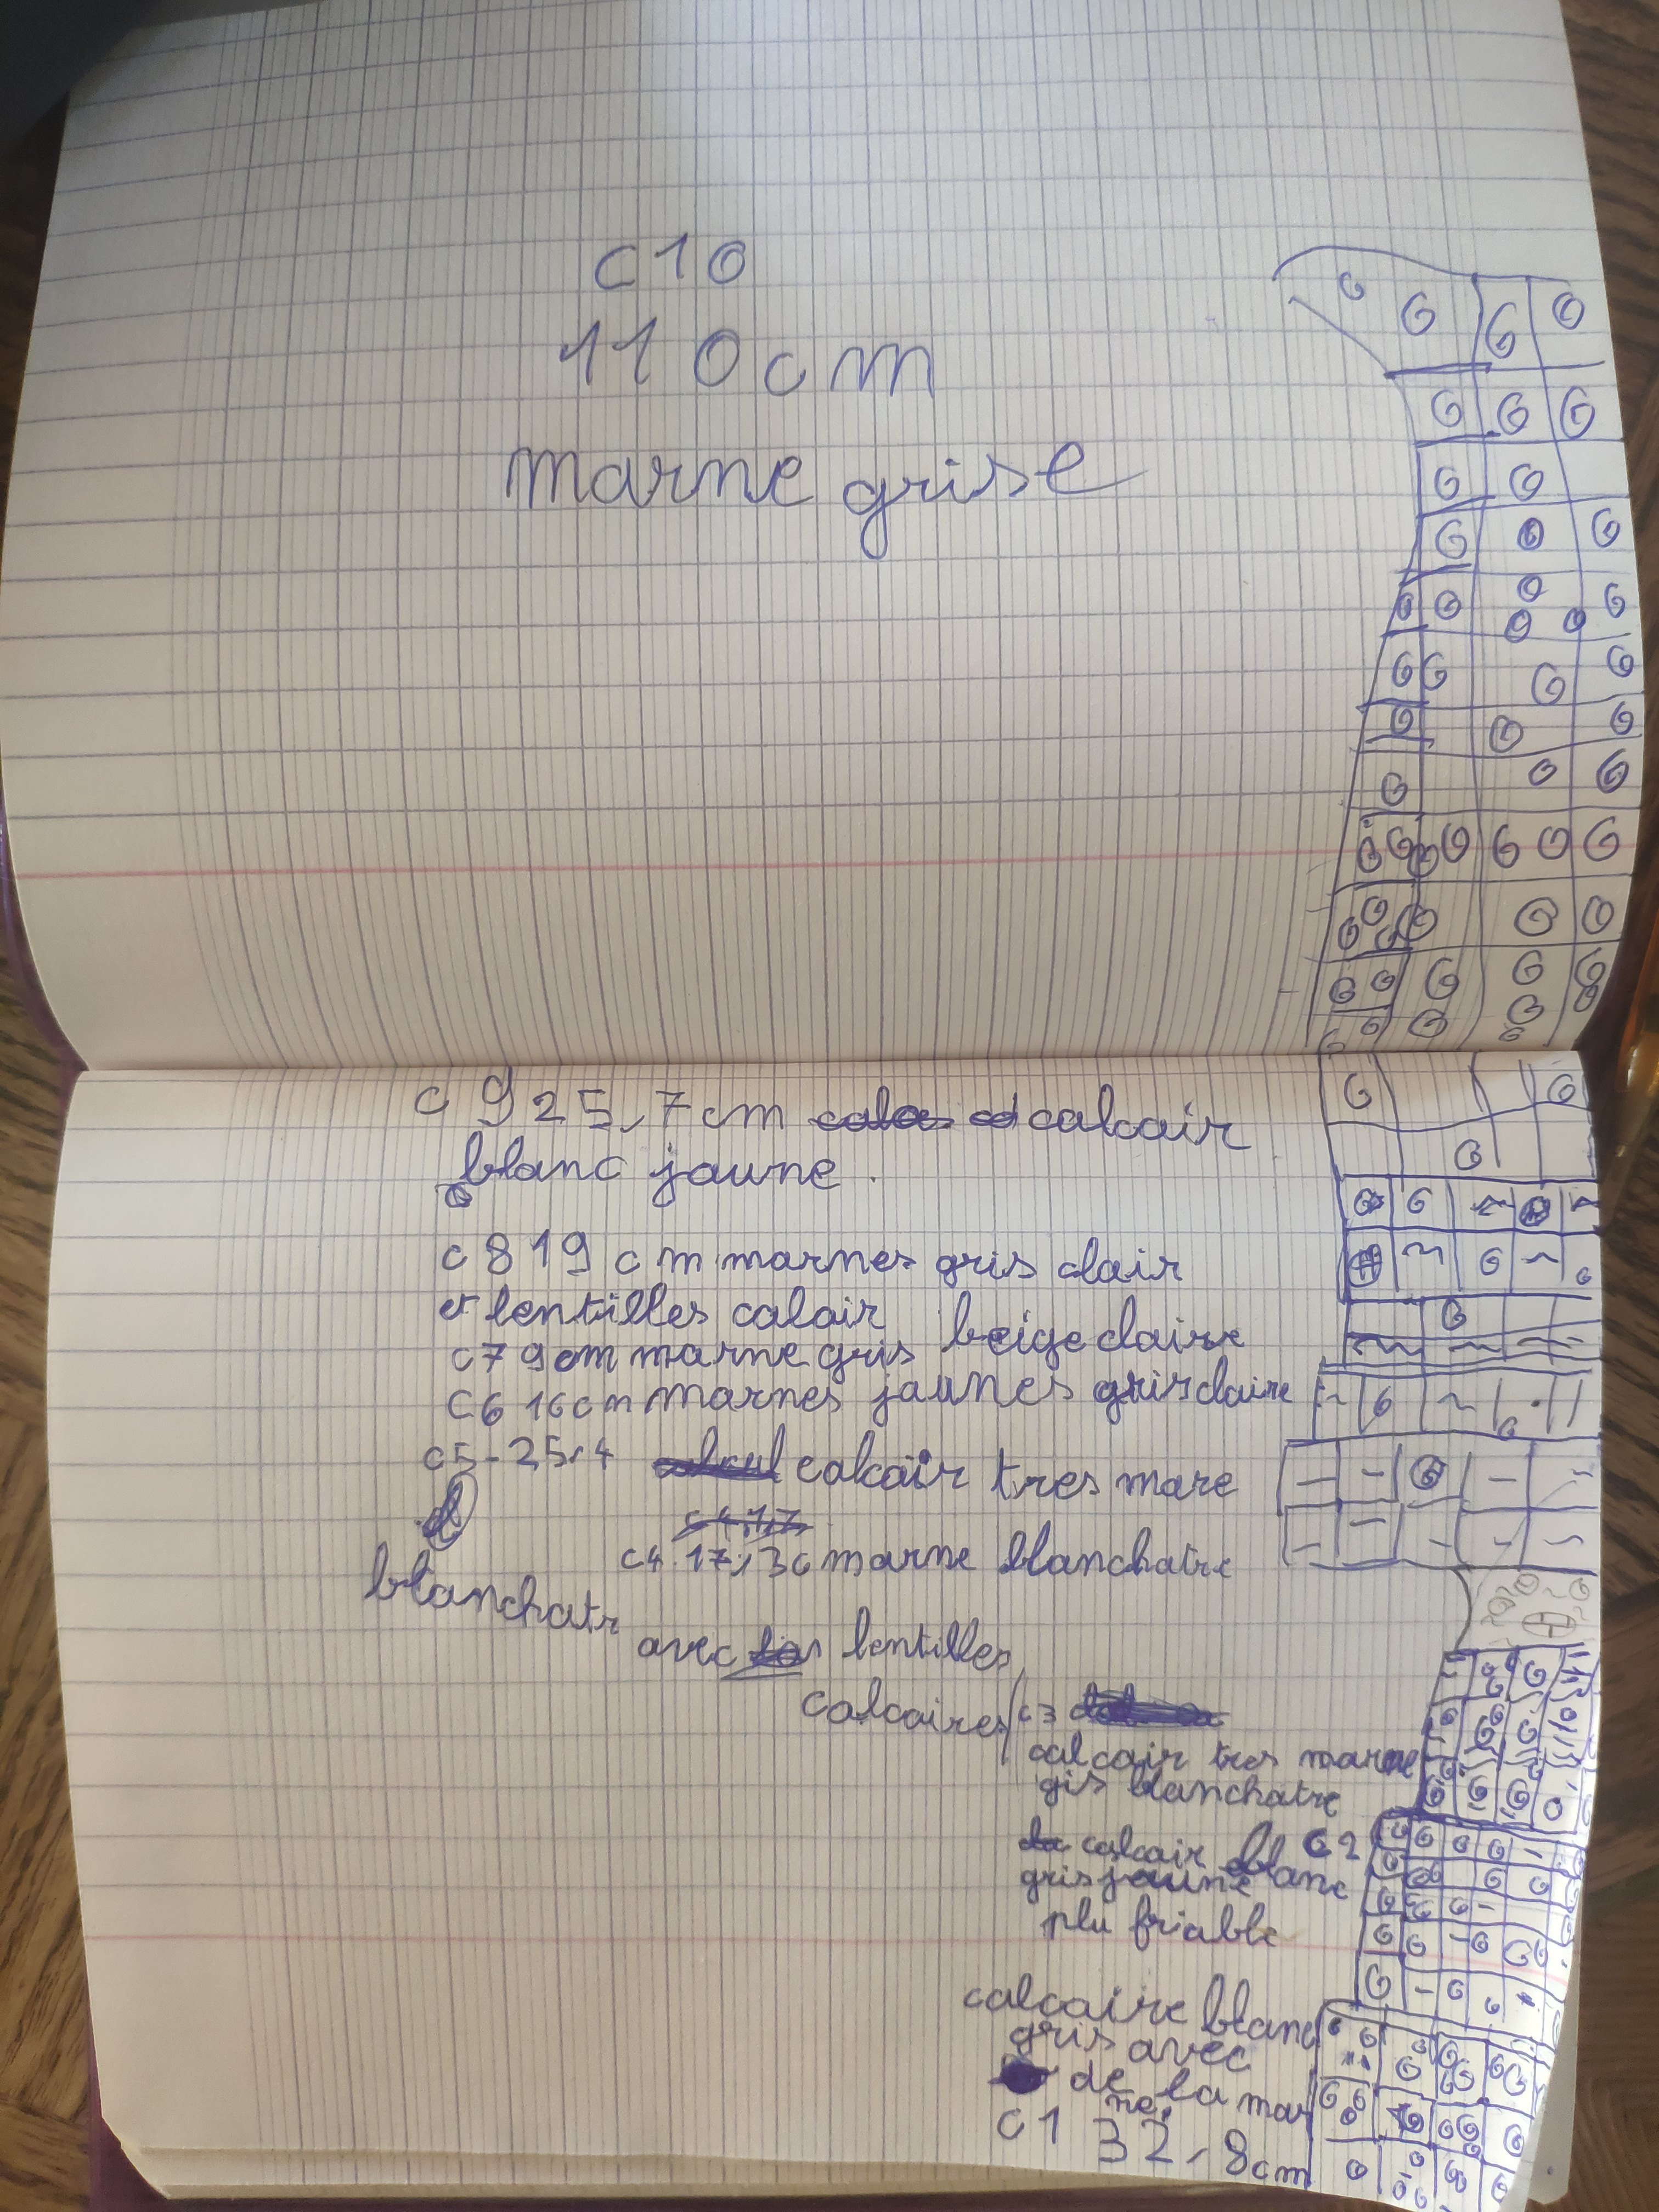 c10
110cm
marne grise
c9 25,7cm calcair
blanc jaune.
c8 19 cm marnes gris clair
et lentilles calair beige claire
c7 9cm marne gris
C6 16cm marnes jaunes gris claire
c5-25,4 calcair tres mare
blanchatr
c4 17,3c marne blanchatre
avec lentilles
calcaires
c3
calcair tres marne
gis blanchatre
calcair blanc C2
gris jaune
plu friable
calcaire blanc
gris avec
de la mar
ne.
C1 32,8cm